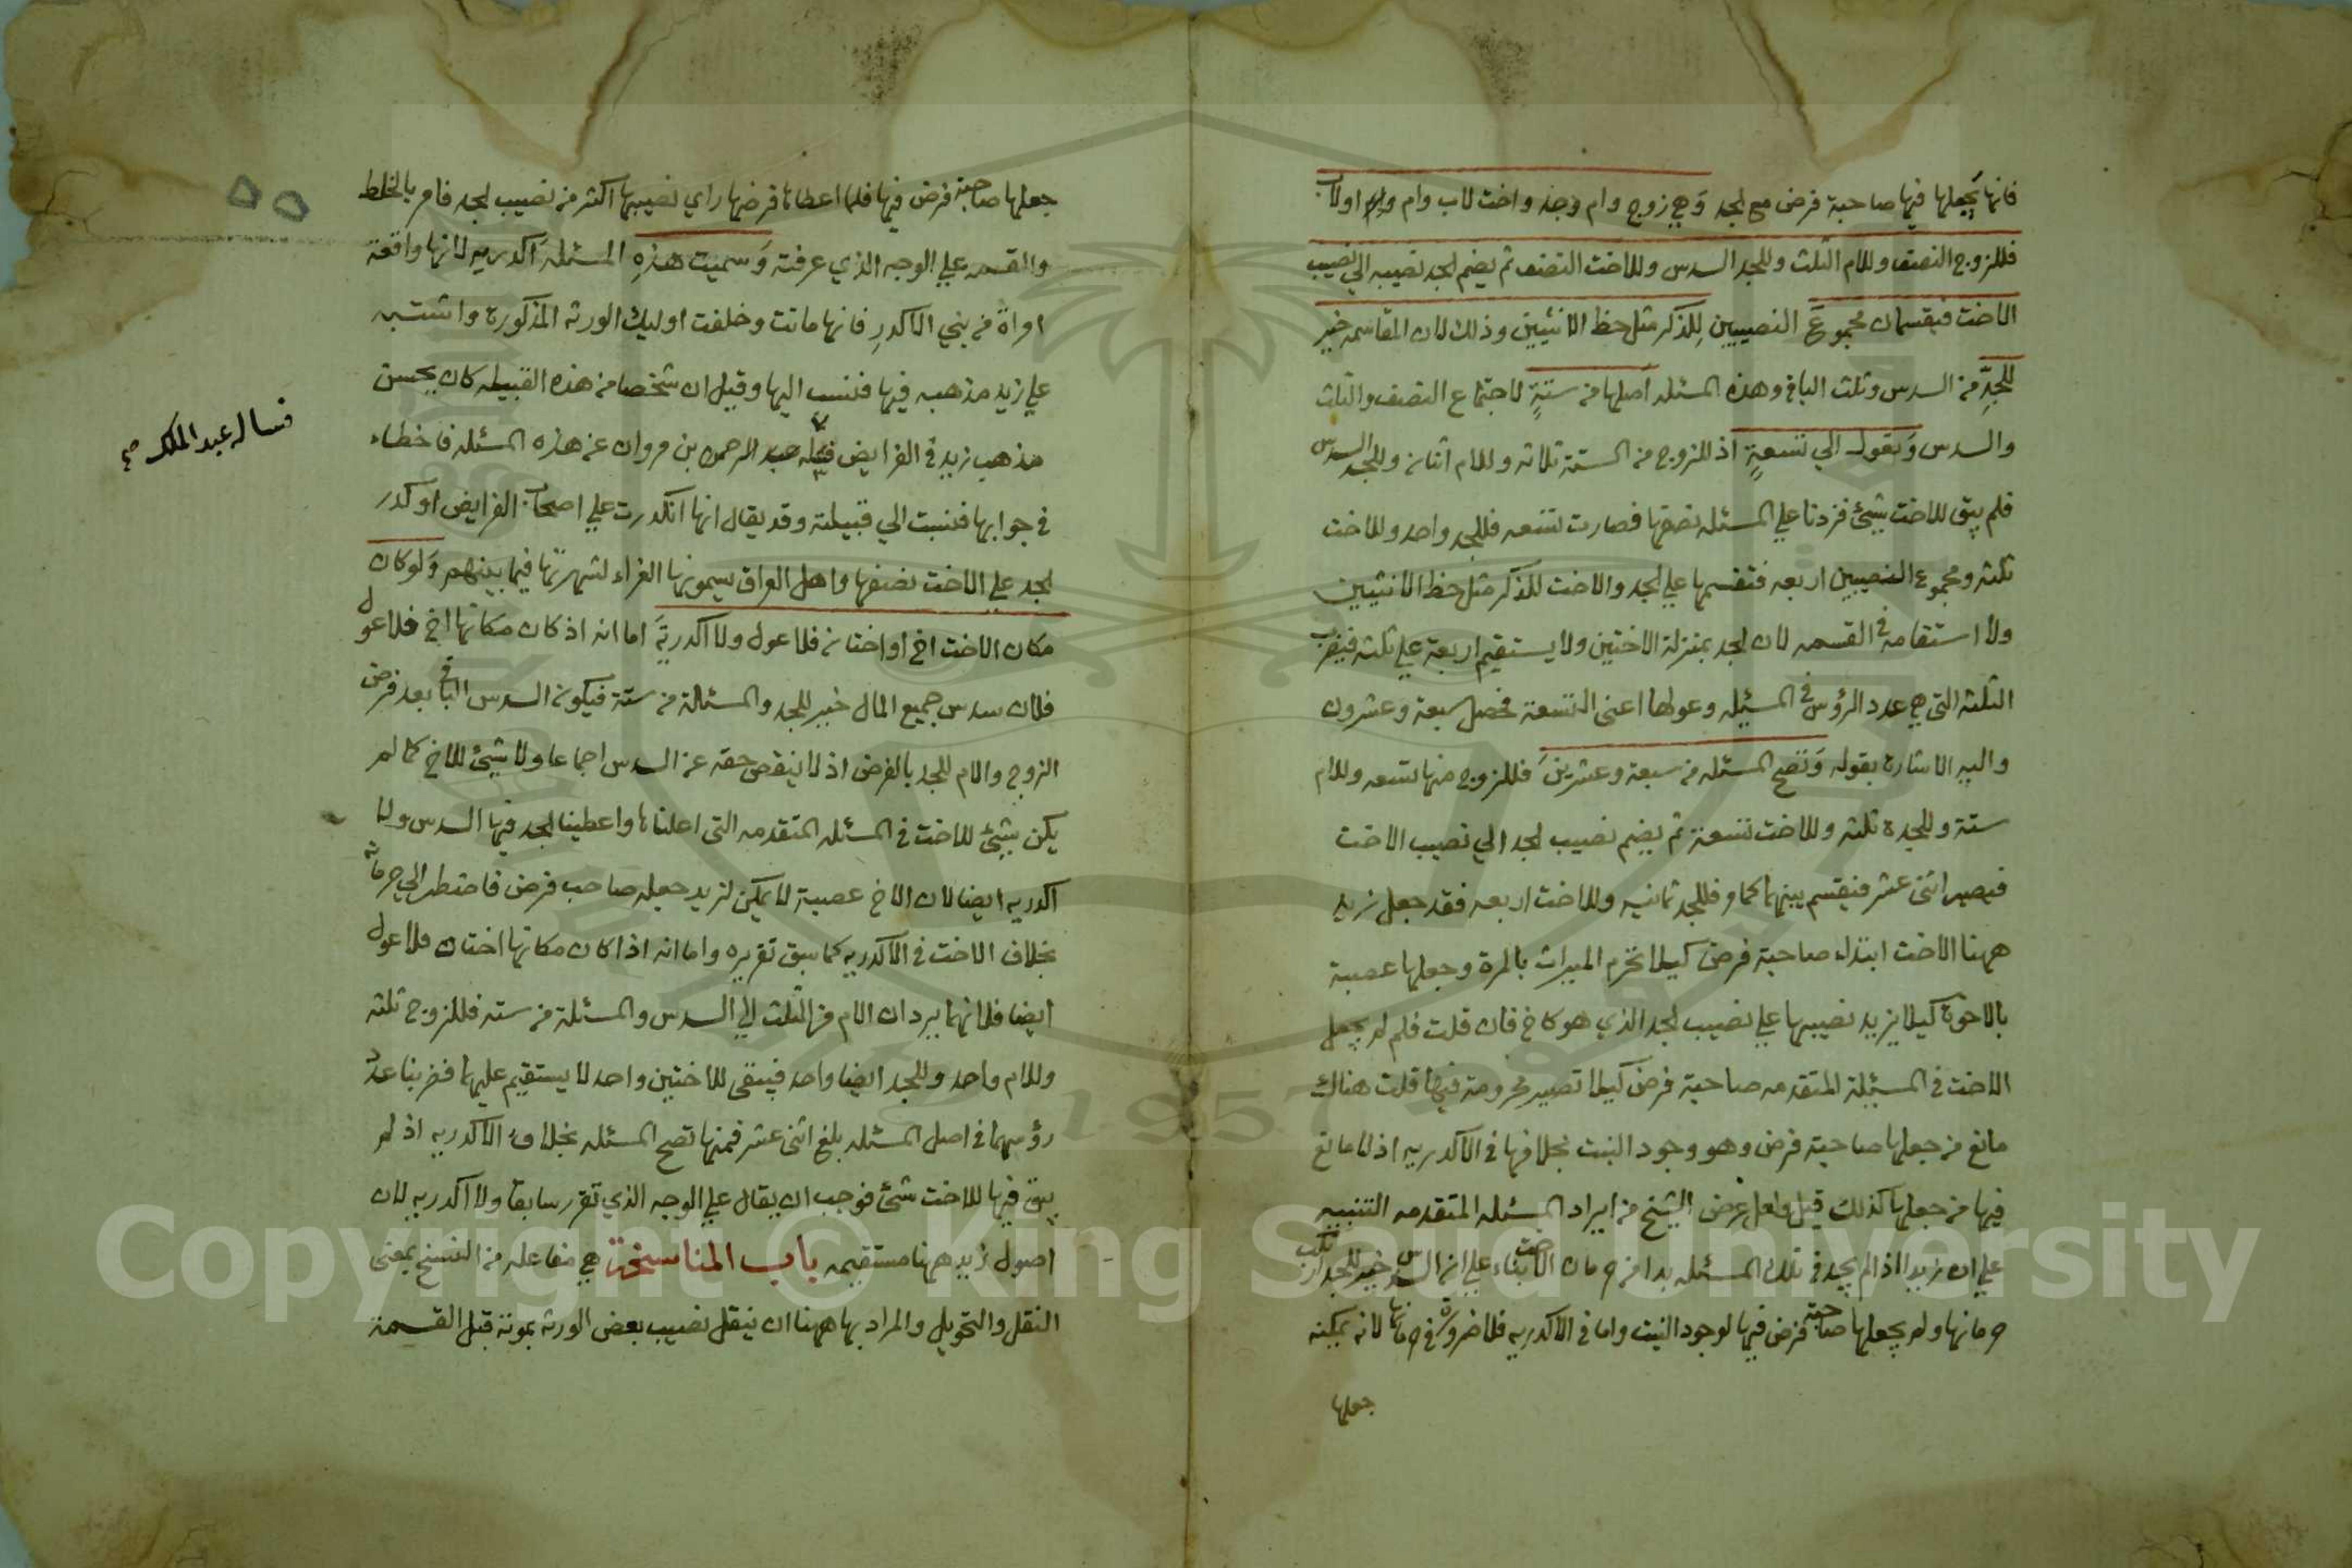 فانها يجعلها فيها صاحبة فرض مع الجد وهي زوج وام وجد واخت لاب وام او لاب
فللزوج النصف وللام الثلث وللجد السدس وللاخت النصف ثم يضم الجد نصيبه الي نصيب
الاخت فيقسمان مجموع النصيبين للذكر مثل حظ الانثيين وذلك لان المقاسمه خير
للجد من السدس وثلث الباقي وهذه المسئله اصلها من ستة لاجتماع النصف والثلث
والسدس وتعول الي تسعة اذ للزوج من الستة ثلاثه وللام اثنان وللجد السدس
فلم يبق للاخت شيئ فزدنا علي المسئله نصفها فصارت تسعه فللجد واحد وللاخت
ثلثه ومجموع النصيبين اربعه فتقسمها علي الجد والاخت للذكر مثل حظ الانثيين
ولا استقامة في القسمه لان الجد بمنزلة الاختين ولا يستقيم اربعة علي ثلثه فيضرب
الثلثه التي هي عدد الرؤس في المسئله وعولها اعني التسعة فحصل سبعة وعشرون
واليه الاشارة بقوله وتصح المسئله من سبعة وعشرين فللزوج منها تسعه وللام
ستة وللجدة ثلثه وللاخت تسعة ثم يضم نصيب الجد الي نصيب الاخت
فيصير اثنى عشر فيقسم بينهما كما مر فللجد ثمانيه وللاخت اربعه فقد جعل زيد
ههنا الاخت ابتداء صاحبة فرض كيلا تحرم الميراث بالمرة وجعلها عصبة
بالاخرة كيلا يزيد نصيبها علي نصيب الجد الذي هو كاخ فان قلت فلم لم يجعل
الاخت في المسئلة المتقدمه صاحبة فرض كيلا تصير محرومة فيها قلت هناك
مانع من جعلها صاحبة فرض وهو وجود البنت بخلافها في الاكدريه اذ لا مانع
فيها من جعلها كذلك قيل ولعل غرض الشيخ من ايراد المسئله المتقدمه التنبيه
علي ان زيدا اذا لم يجد في تلك المسئله بدا من حرمان الاخت بناء علي ان السدس خير للجد ارتكب
حرمانها ولم يجعلها صاحبة فرض فيها لوجود البنت واما في الاكدريه فلا ضرورة في حرمانها لانه يمكنه
جعلها
جعلها صاحبة فرض فيها فلما اعطاها فرضها راي نصيبها اكثر من نصيب الجد فامر بالخلط
والقسمه علي الوجه الذي عرفته وسميت هذه المسئله اكدريه لانها واقعة
امراة من بني الاكدر فانها ماتت وخلفت اوليك الورثه المذكورة واشتبه
علي زيد مذهبه فيها فنسب اليها وقيل ان شخصا من هذه القبيله كان يحسن
مذهب زيد في الفرايض عبد الرحمن بن مروان عن هذه المسئله فاخطاء
في جوابها فنسبت الي قبيلته وقد يقال انها انكدرت علي اصحاب الفرايض او كدر
الجد علي الاخت نصفها واهل العراق يسمونها الغراء لشهرتها فيما بينهم ولو كان
مكان الاخت اخ او اختان فلا عول ولا اكدرية اما انه اذ كان مكانها اخ فلا عول
فلان سدس جميع المال خير للجد والمسئلة من ستة فيكون السدس الباقي بعد فرض
الزوج والام للجد بالفرض اذ لا ينقص حقه عن السدس اجماعا ولا شيئ للاخ كما لم
يكن شيئ للاخت في المسئله المتقدمه التي اعلناها واعطينا الجد فيها السدس ولا
اكدريه ايضا لان الاخ عصبة لا يمكن لزيد جعله صاحب فرض فاضطر الي حرمانه
بخلاف الاخت في الاكدريه كما سبق تقريره واما انه اذا كان مكانها اختان فلا عول
ايضا فلانهما يردان الام من الثلث الي السدس والمسئلة من سته فللزوج ثلثه
وللام واحد وللجد ايضا واحد فيبقى للاختين واحد لا يستقيم عليهما فضربنا عدد
رؤسهما في اصل المسئله بلغ اثنى عشر فمنها تصح المسئله بخلاف الاكدريه اذ لم
يبق فيها للاخت شئ فوجب ان يقال علي الوجه الذي تقرر سابقا ولا اكدريه لان
اصول زيد ههنا مستقيمه باب المناسخة هي مفاعله من النسخ بمعنى
النقل والتحويل والمراد بها ههنا ان ينقل نصيب بعض الورثه بموته قبل القسمة
فساله عبد الملك صح
Copyright © King Saud University
1957